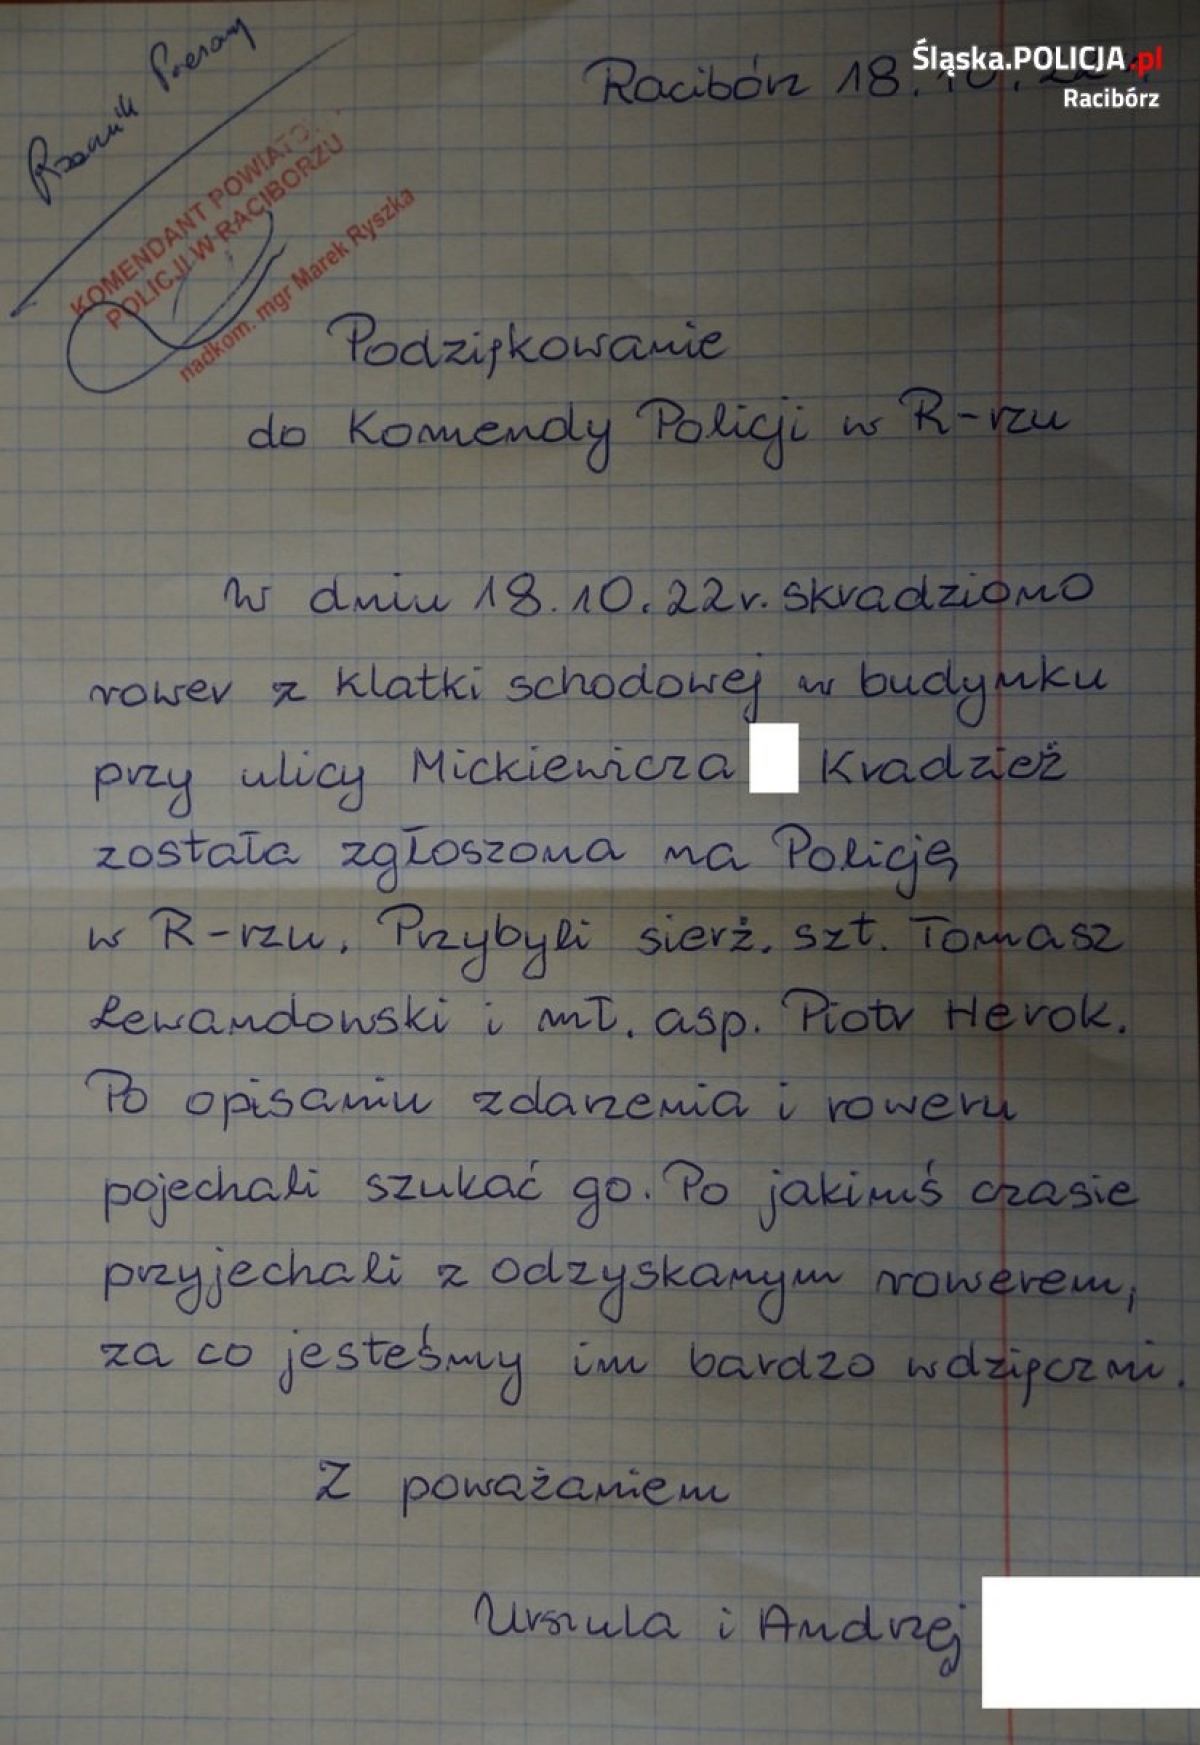 Śląska.POLICJA.pl
Racibórz
Racibórz 18.10.22r.
Rzecznik Prasowy
KOMENDANT POWIATO
POLICJI W RACIBORZU
nadkom. mgr Marek Ryszka
Podziękowanie
do Komendy Policji w R-rzu
W dniu 18.10.22r. skradziono
rower z klatki schodowej w budynku
przy ulicy Mickiewicza Kradzież
została zgłoszona na Policję
w R-rzu. Przybyli sierż. szt. Tomasz
Lewandowski i mł. asp. Piotr Herok.
Po opisaniu zdarzenia i roweru
pojechali szukać go. Po jakimś czasie
przyjechali z odzyskanym rowerem,
za co jesteśmy im bardzo wdzięczni.
Z poważaniem
Urszula i Andrzej